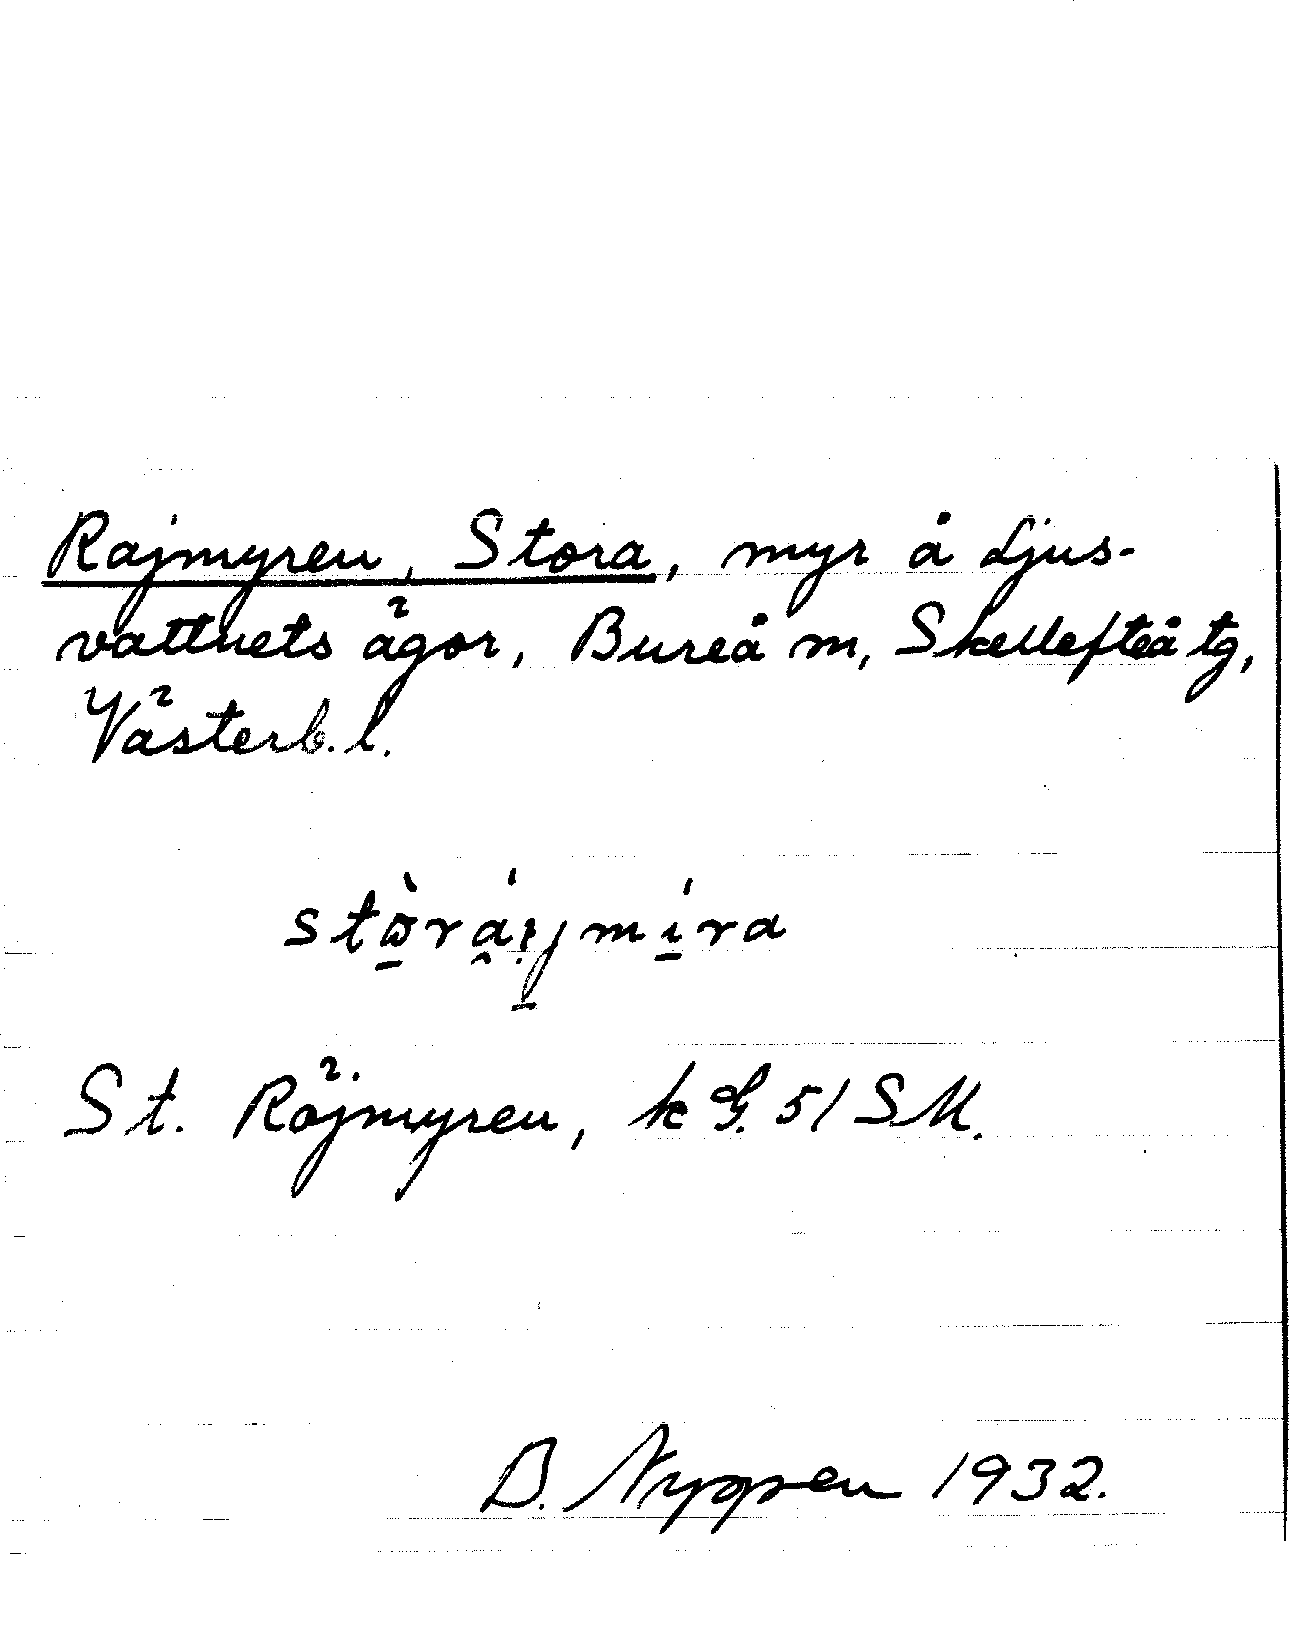 Rajmyren, Stora, myr å Ljus-
vattnets ägor, Bureå m, Skellefteå tg,
Västerb. l.
St. Röjmyren, k G. 51 SM.
B. Nygren 1932.